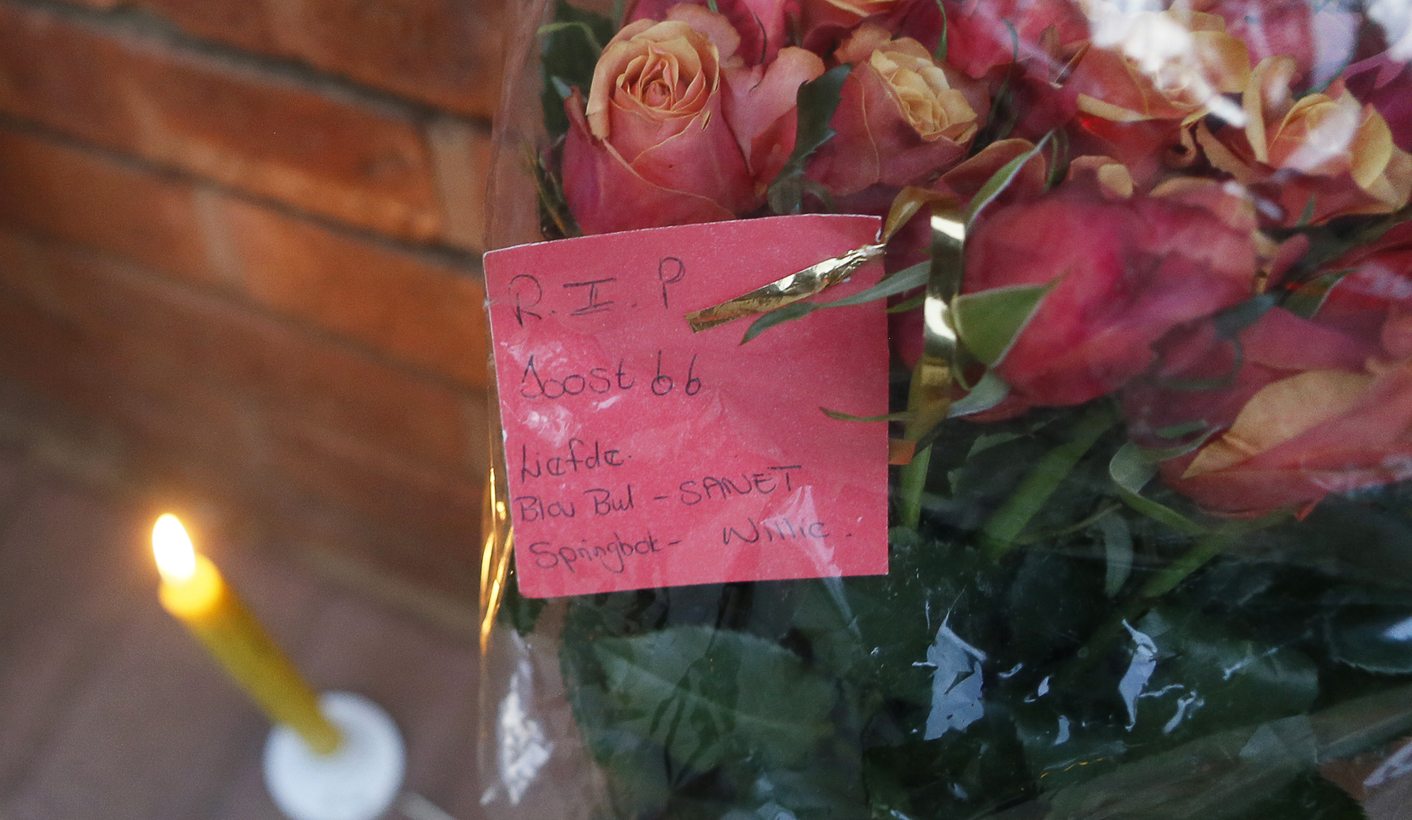 R.I.P
Joost 66
Liefde.
Blou Bul - SANET
Springbok - Willie.